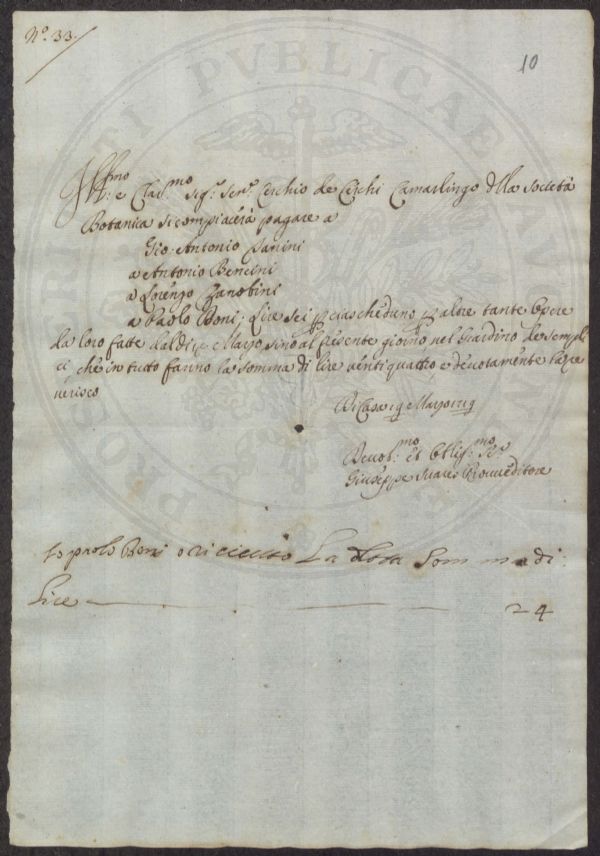 N.º 33.
10
Ill.mo e Clar.mo Sig.r Sen.r Cerchio de Cerchi Camarlingo della Società
Botanica si compiacerà pagare a
Gio: Antonio Panini
a Antonio Bencini
a Lorenzo Zanobini
a Paolo Boni: Lire sei p ciascheduno p altre tante Opere
da loro fatte dal dì Maggio sino al presente giorno nel Giardino de sempli
ci, che in tutto fanno la somma di lire ventiquattro e devotamente la re
verisco
Di Casa 19 Maggio
Devot.mo et Oblig.mo Se.r
Giuseppe Suares Provveditore
Io paolo Boni o riceuto La detta Somma di
Lire 24
PUBLICAE